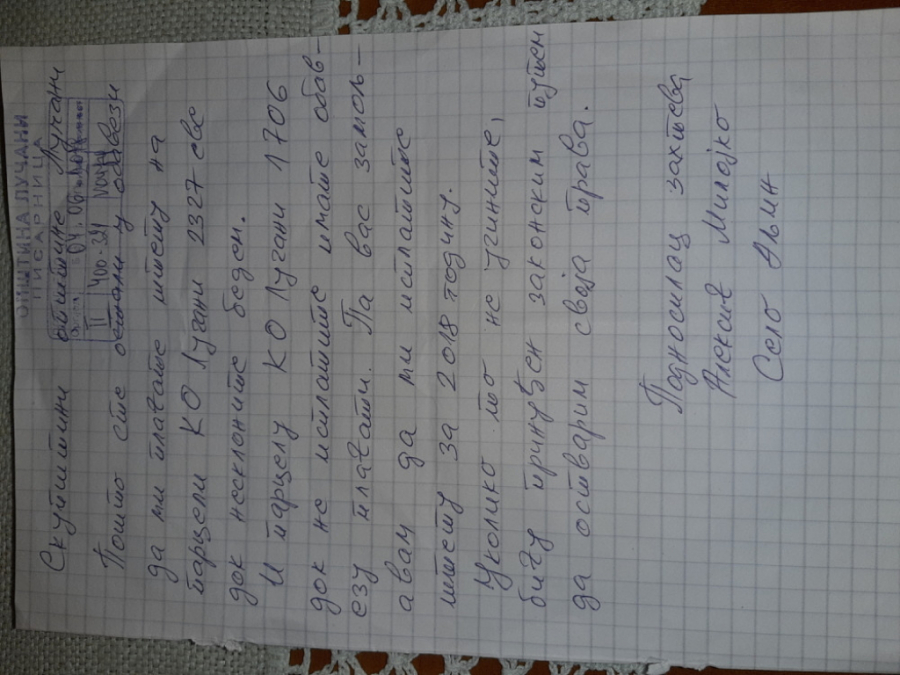 ОПШТИНА ЛУЧАНИ
ПИСАРНИЦА
Скупштини општине Лучани
II 400-381
Пошто сте остали у обавези
да ми плаћате штету на
парцели КО Лучани 2327 све
док несклоните беден.
И парцелу КО Лучани 1706
док не исплатите имате обав-
езу плаћати. Па вас замољ-
авам да ми исплатите
штету за 2018 годину.
Уколико то не учините,
бићу принуђен законским путем
да остварим своја права.
Подносилац захтева
Алексић Милојко
Село Дљин